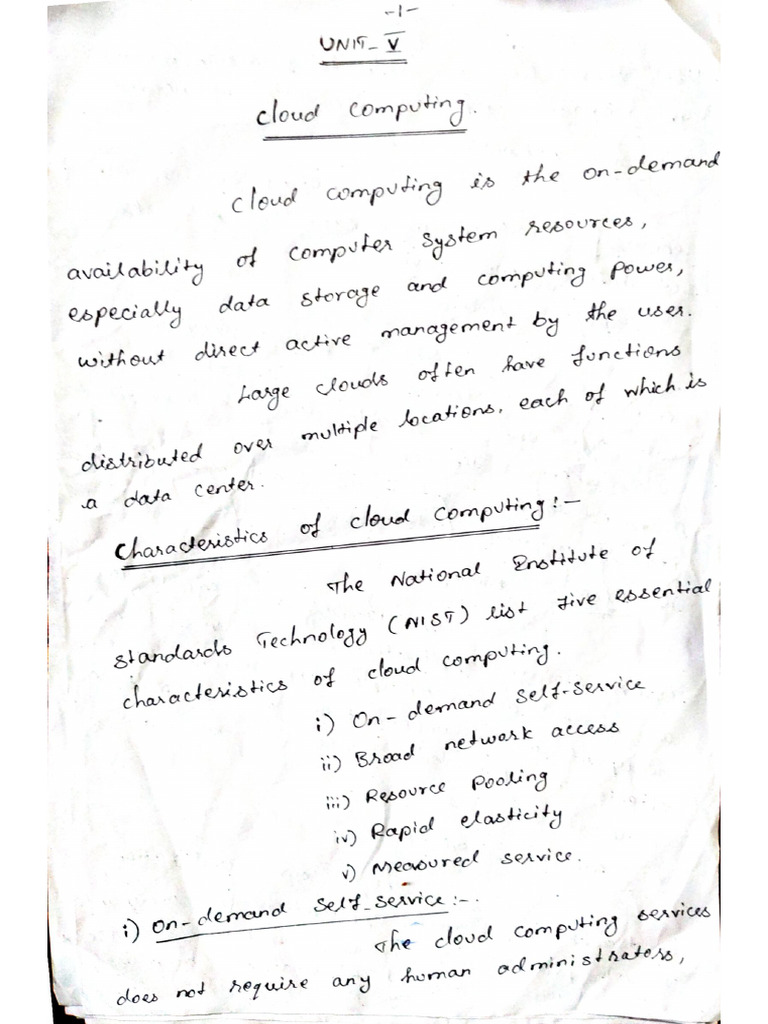 -1-
UNIT-V
cloud computing.
cloud computing is the on-demand
availability of computer system resources,
especially data storage and computing power,
without direct active management by the user.
Large clouds often have functions
distributed over multiple locations, each of which is
a data center.
Characteristics of cloud computing:-
The National Institute of
standards Technology (NIST) list five essential
characteristics of cloud computing.
i) On-demand self-service
ii) Broad network access
iii) Resource pooling
iv) Rapid elasticity
v) Measured service.
i) On-demand self-service:-.
The cloud computing services
does not require any human administrators,